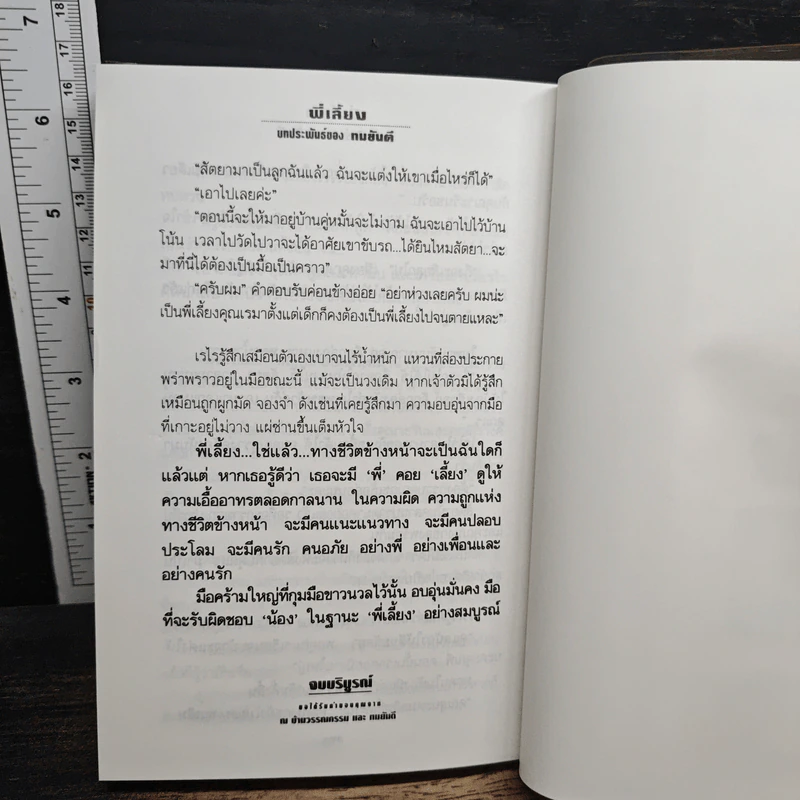 พี่เลี้ยง
บทประพันธ์ของ ทมยันตี
“สัตยามาเป็นลูกฉันแล้ว ฉันจะแต่งให้เขาเมื่อไหร่ก็ได้”
“เอาไปเลยค่ะ”
“ตอนนี้จะให้มาอยู่บ้านคู่หมั้นจะไม่งาม ฉันจะเอาไปไว้บ้าน
โน้น เวลาไปวัดไปวาจะได้อาศัยเขาขับรถ...ได้ยินไหมสัตยา...จะ
มาที่นี่ได้ต้องเป็นมื้อเป็นคราว”
“ครับผม” คำตอบรับค่อนข้างอ่อย “อย่าห่วงเลยครับ ผมน่ะ
เป็นพี่เลี้ยงคุณเรมาตั้งแต่เด็กก็คงต้องเป็นพี่เลี้ยงไปจนตายแหละ”
เรไรรู้สึกเสมือนตัวเองเบาจนไร้น้ำหนัก แหวนที่ส่องประกาย
พร่าพราวอยู่ในมือขณะนี้ แม้จะเป็นวงเดิม หากเจ้าตัวมิได้รู้สึก
เหมือนถูกผูกมัด จองจำ ดังเช่นที่เคยรู้สึกมา ความอบอุ่นจากมือ
ที่เกาะอยู่ไม่วาง แผ่ซ่านขึ้นเต็มหัวใจ
พี่เลี้ยง...ใช่แล้ว...ทางชีวิตข้างหน้าจะเป็นฉันใดก็
แล้วแต่ หากเธอรู้ดีว่า เธอจะมี ‘พี่’ คอย ‘เลี้ยง’ ดูให้
ความเอื้ออาทรตลอดกาลนาน ในความผิด ความถูกแห่ง
ทางชีวิตข้างหน้า จะมีคนแนะแนวทาง จะมีคนปลอบ
ประโลม จะมีคนรัก คนอภัย อย่างพี่ อย่างเพื่อนและ
อย่างคนรัก
มือคร้ามใหญ่ที่กุมมือขาวนวลไว้นั้น อบอุ่นมั่นคง มือ
ที่จะรับผิดชอบ ‘น้อง’ ในฐานะ ‘พี่เลี้ยง’ อย่างสมบูรณ์
จบบริบูรณ์
ขอได้รับคำขอบคุณจาก
ณ บ้านวรรณกรรม และ ทมยันตี
7
6
5
4
3
2
1
18
17
16
15
14
13
12
11
10